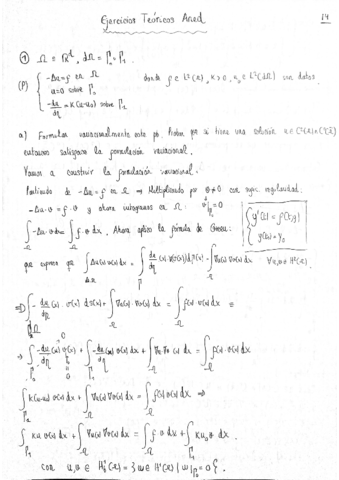 Ejercicios Teóricos Aned
14
① Ω = ℝᵈ, ∂Ω = Γ₀ ∪ Γ₁.
(P) { -Δu = f en Ω
u = 0 sobre Γ₀
-du/dη = K(u-u₀) sobre Γ₁
donde f ∈ L²(Ω), K>0, u₀ ∈ L²(∂Ω) son datos.
a) Formular variacionalmente este pb. Probar que si tiene una solución u ∈
entonces satisface la formulación variacional.
Vamos a construir la formulación variacional.
Partiendo de -Δu = f en Ω ⇒ Multiplicando por v≠0 con
-Δu·v = f·v y ahora integramos en Ω:
v|Γ₀ = 0
{ y'(t) = f(t,y)
y(t₀) = y₀
∫_Ω -Δu·v dx = ∫_Ω f·v dx, Ahora aplico la fórmula de Green:
que expresa que ∫_Ω Δu(x) v(x) dx = ∫_Γ du/dη (x)·v(x) dΓ(x) - ∫_Ω ∇u(x) ∇v(x) dx ∀u,v ∈ H¹(Ω).
⇒ ∫_∂Ω -du/dη (x)·v(x) dΓ(x) + ∫_Ω ∇u(x)·∇v(x) dx = ∫_Ω f(x)·v(x) dx
⇒ ∫_Γ₀ -du/dη (x) v(x) dx + ∫_Γ₁ -du/dη (x) v(x) dx + ∫_Ω ∇u·∇v(x) dx = ∫_Ω f(x)·v(x) dx
∫_Γ₁ K(u-u₀) v(x) dx + ∫_Ω ∇u(x) ∇v(x) dx = ∫_Ω f(x) v(x) dx ⇒
∫_Γ₁ K u v(x) dx + ∫_Ω ∇u(x) ∇v(x) dx = ∫_Ω f v dx + ∫_Γ₁ K u₀ v dx.
con u,v ∈ H¹₀(Ω) = {w ∈ H¹(Ω) | w|Γ₀ = 0}.